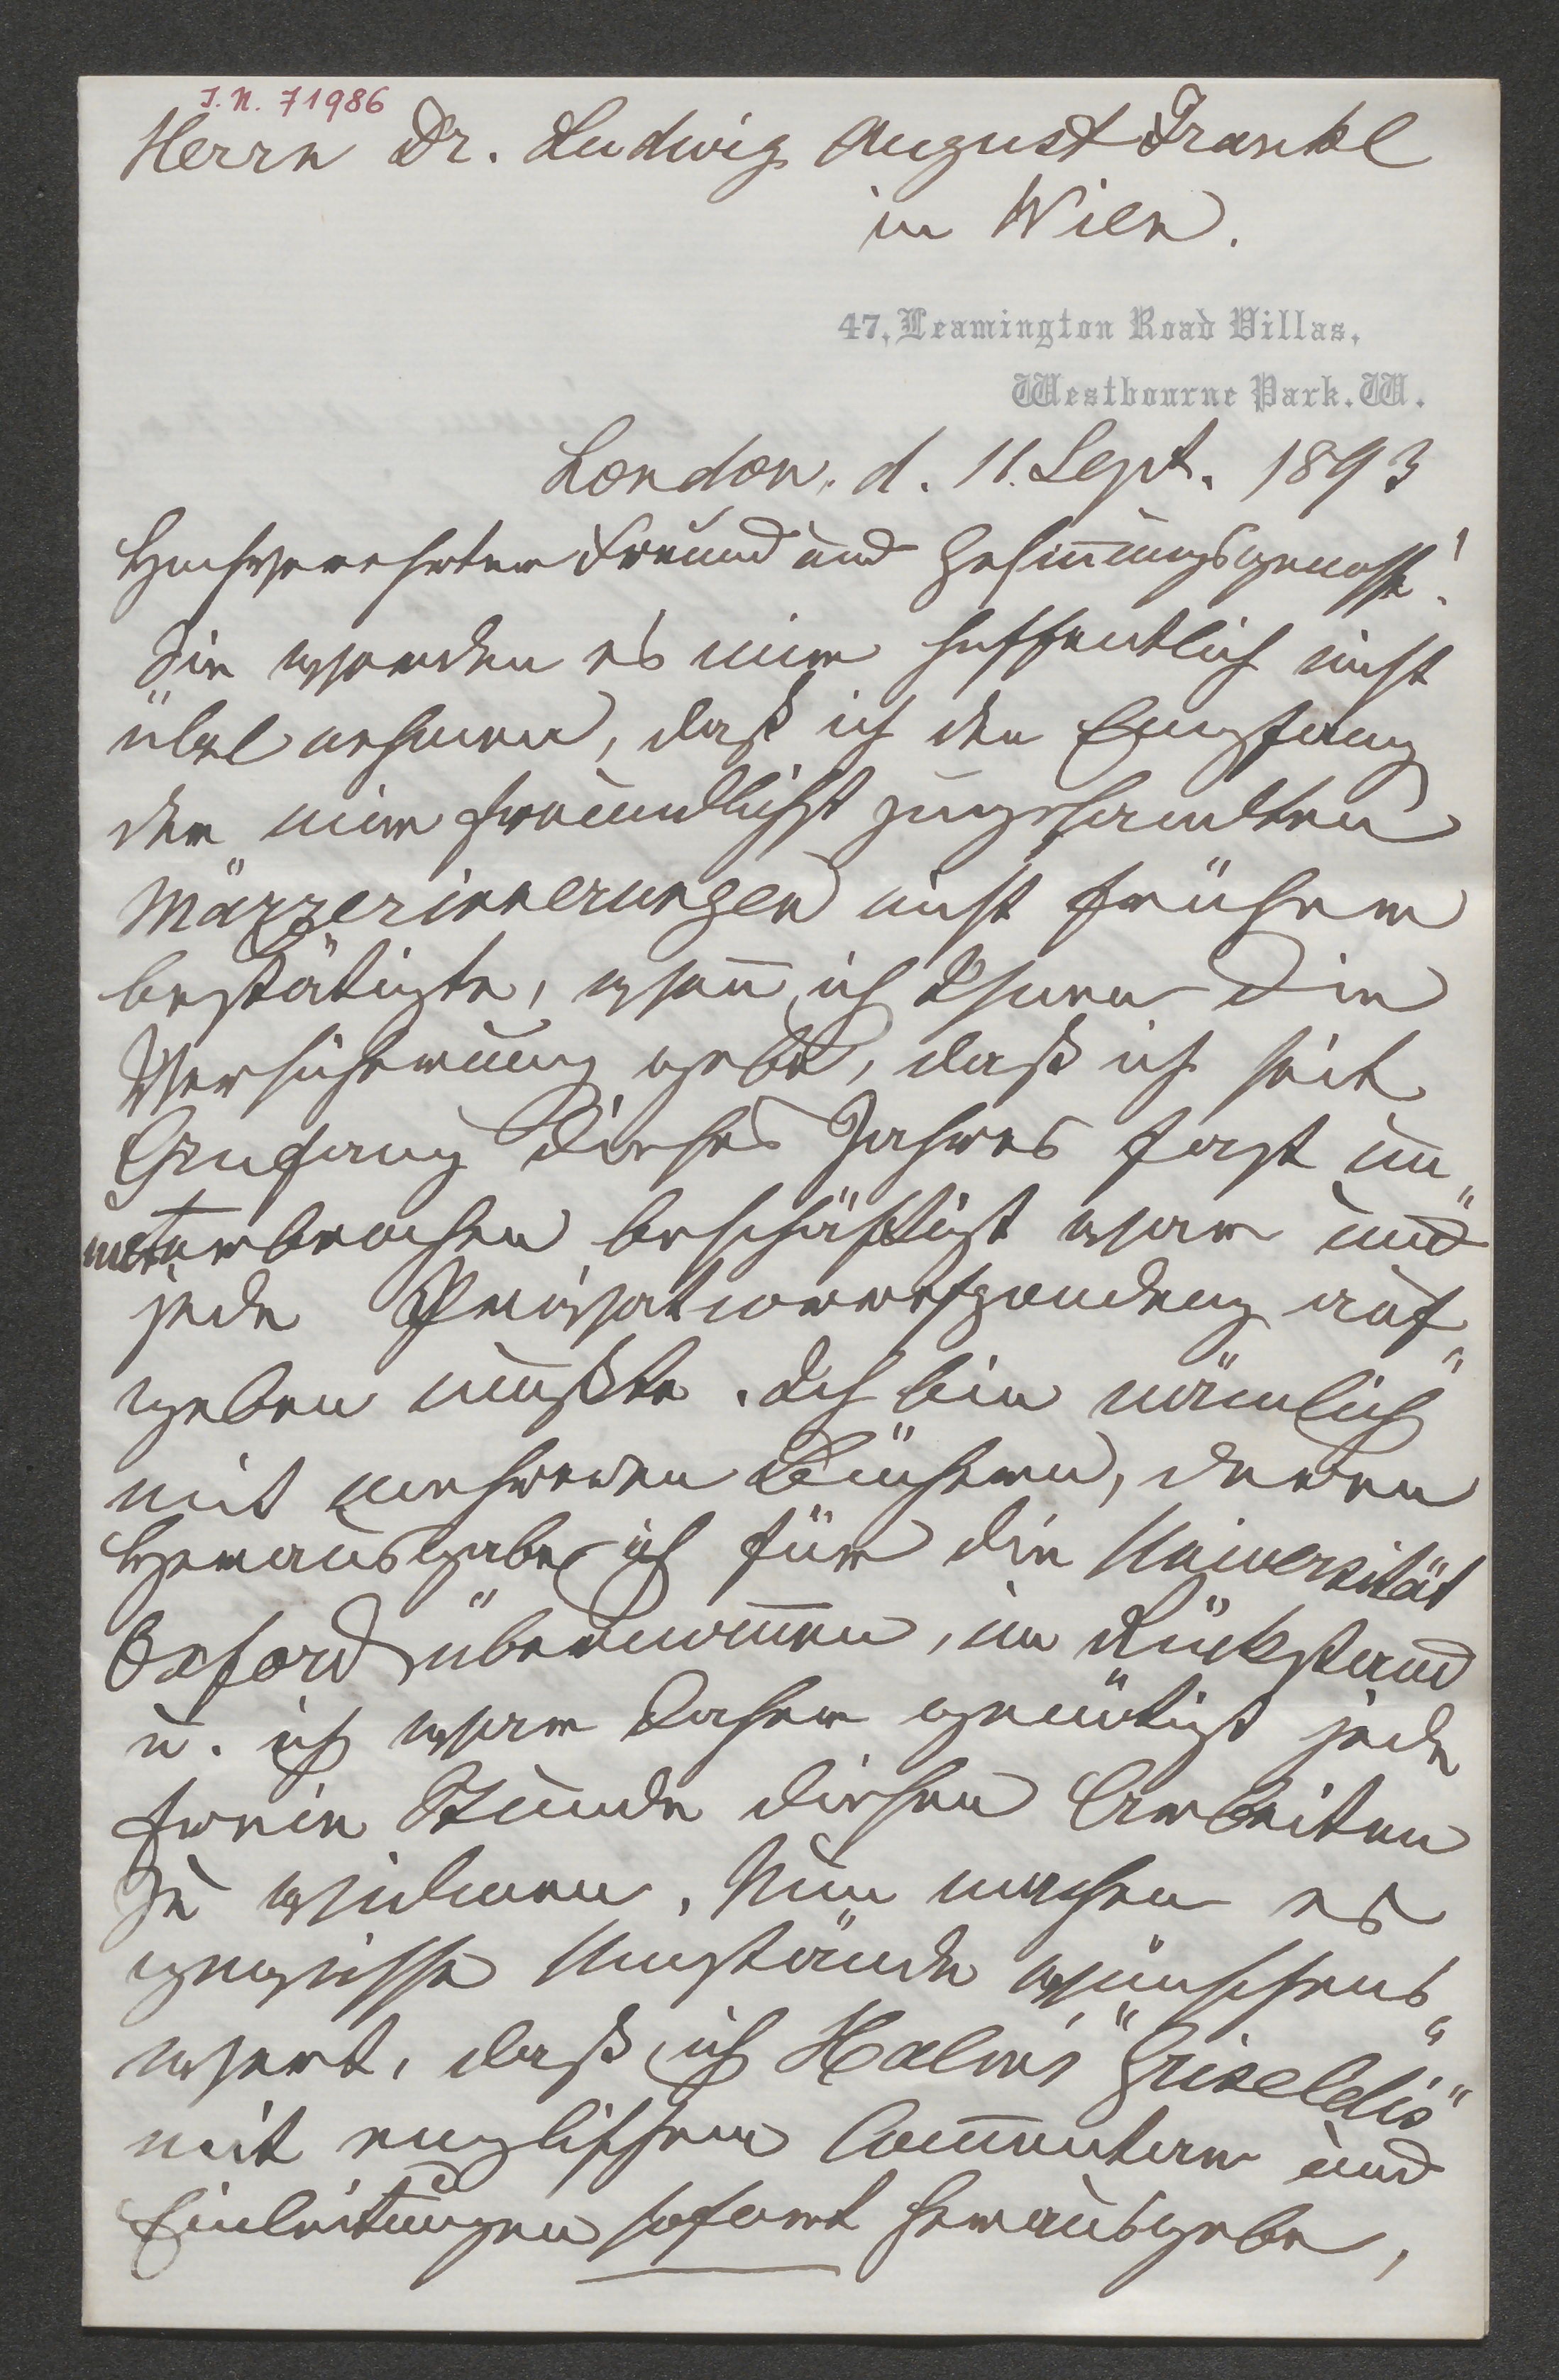 J. N. 71986
Herrn Dr. Ludwig August Frankl
in Wien.
47, Leamington Road Villas,
Westbourne Park. W.
London, d. 11. Sept. 1893
Hochverehrter Freund und Gesinnungsgenosse!
Sie werden es mir hoffentlich nicht
übel nehmen, daß ich den Empfang
der mir freundlichst zugesandten
Märzerinnerungen nicht früher
bestätigte, wenn ich Ihnen die
Versicherung gebe, daß ich seit
Anfang dieses Jahres fast un„
unterbrochen beschäftigt war und
jede Privatcorrespondenz auf„
geben mußte. Ich bin nämlich
mit mehreren Büchern, deren
Herausgabe ich für die Universität
Oxford übernommen, im Rückstand
u. ich war daher genötigt jede
freie Stunde diesen Arbeiten
zu widmen. Nun machen es
gewisse Umstände wünschens„
wert, daß ich Halm's "Griseldis"
mit englischem Commentar und
Einleitungen sofort herausgebe,